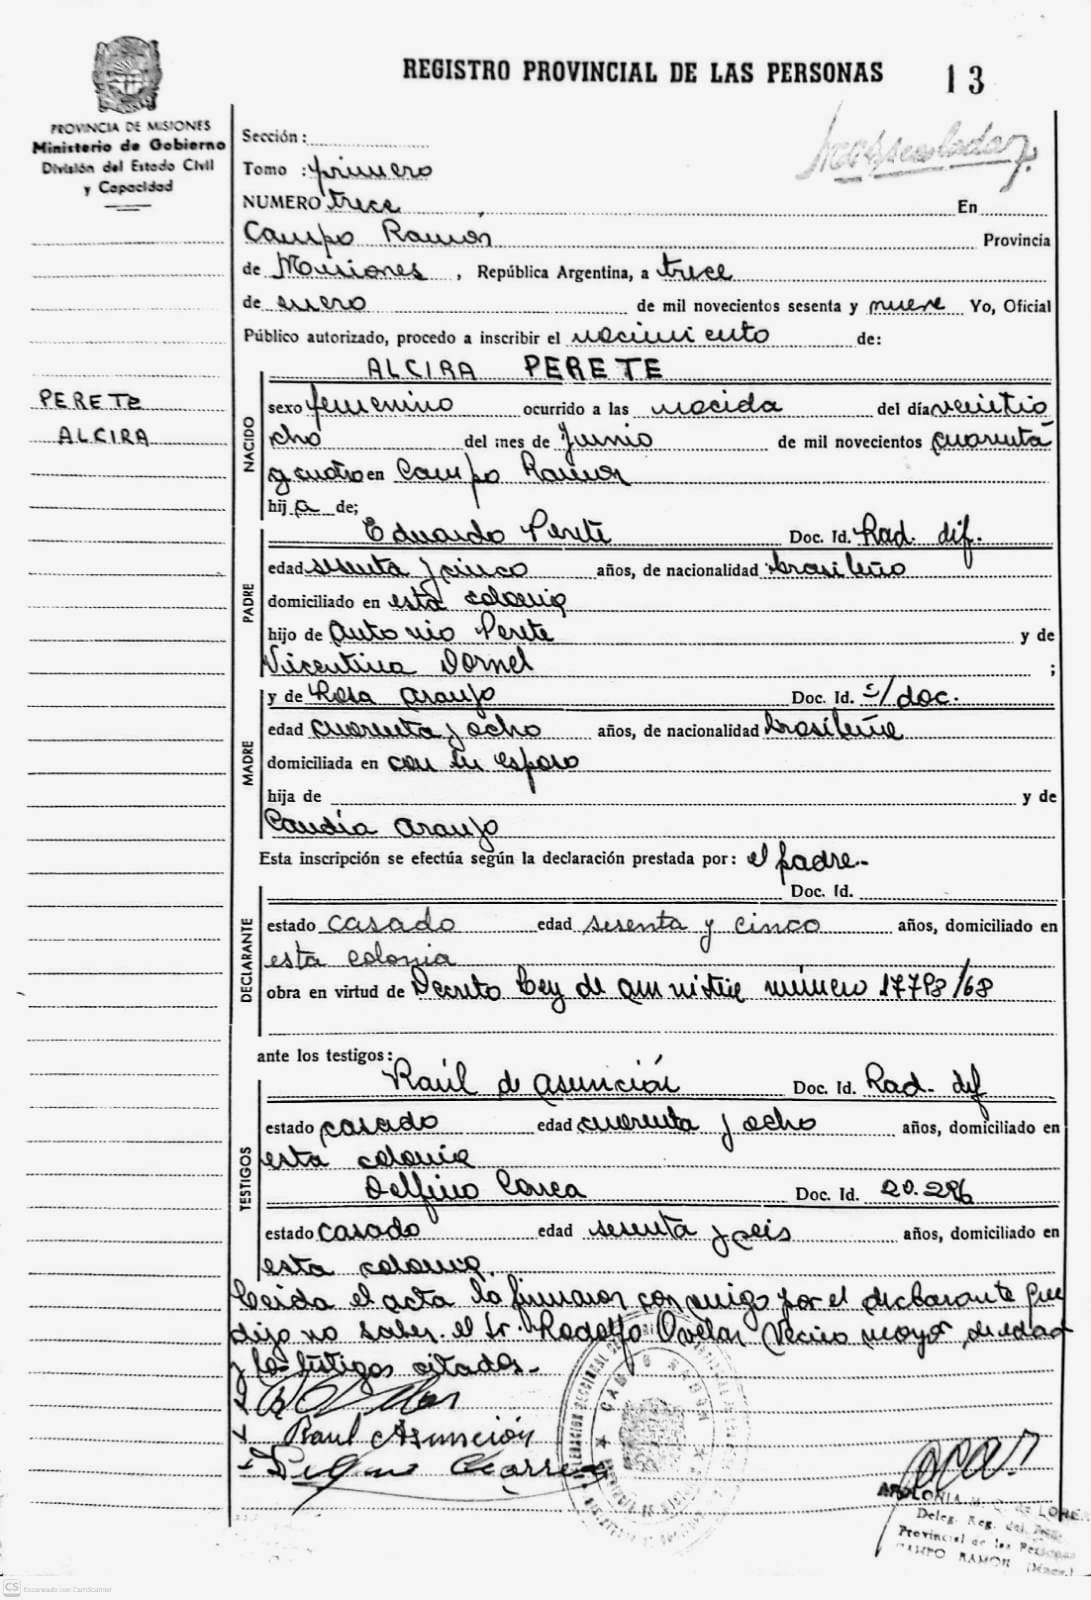 REGISTRO PROVINCIAL DE LAS PERSONAS
13
PROVINCIA DE MISIONES
Ministerio de Gobierno
División del Estado Civil
y Capacidad
Sección:
Tomo : primero
NUMERO trece En
Campo Ramón Provincia
de Misiones, República Argentina, a trece
de enero de mil novecientos sesenta y nueve Yo, Oficial
Público autorizado, procedo a inscribir el nacimiento de:
ALCIRA PERETE
PERETE
ALCIRA
NACIDO
sexo femenino ocurrido a las nacida del día veintio
cho del mes de Junio de mil novecientos cuarenta
y cuatro en Campo Ramon
hija de;
PADRE
Eduardo Perete Doc. Id. Rad. dif.
edad sesenta y cinco años, de nacionalidad brasileño
domiciliado en esta colonia
hijo de Antonio Perete y de
Vicentina Dornel ;
MADRE
y de Rosa Araujo Doc. Id. s/doc.
edad cuarenta y ocho años, de nacionalidad brasileña
domiciliada en con su esposo
hija de y de
Claudia Araujo
Esta inscripción se efectúa según la declaración prestada por: el padre.-
Doc. Id.
DECLARANTE
estado casado edad sesenta y cinco años, domiciliado en
esta colonia
obra en virtud de Decreto Ley de amnistia número 17793/68
ante los testigos:
TESTIGOS
Raúl de asunción Doc. Id. Rad. dif
estado casado edad cuarenta y ocho años, domiciliado en
esta colonia
Delfino Correa Doc. Id. 20.296
estado casado edad sesenta y seis años, domiciliado en
esta colonia.
Leida el acta la firmaron conmigo por el declarante que
dijo no saber. el Sr. Rodolfo Ovelar Vecino mayor de edad
y los testigos citados.-
Raul Asunción
CAMPO RAMON
APOLONIA
Deleg. Reg. del
Provincial de las Personas
CAMPO RAMON (Mnes.)
CS Escaneado con CamScanner